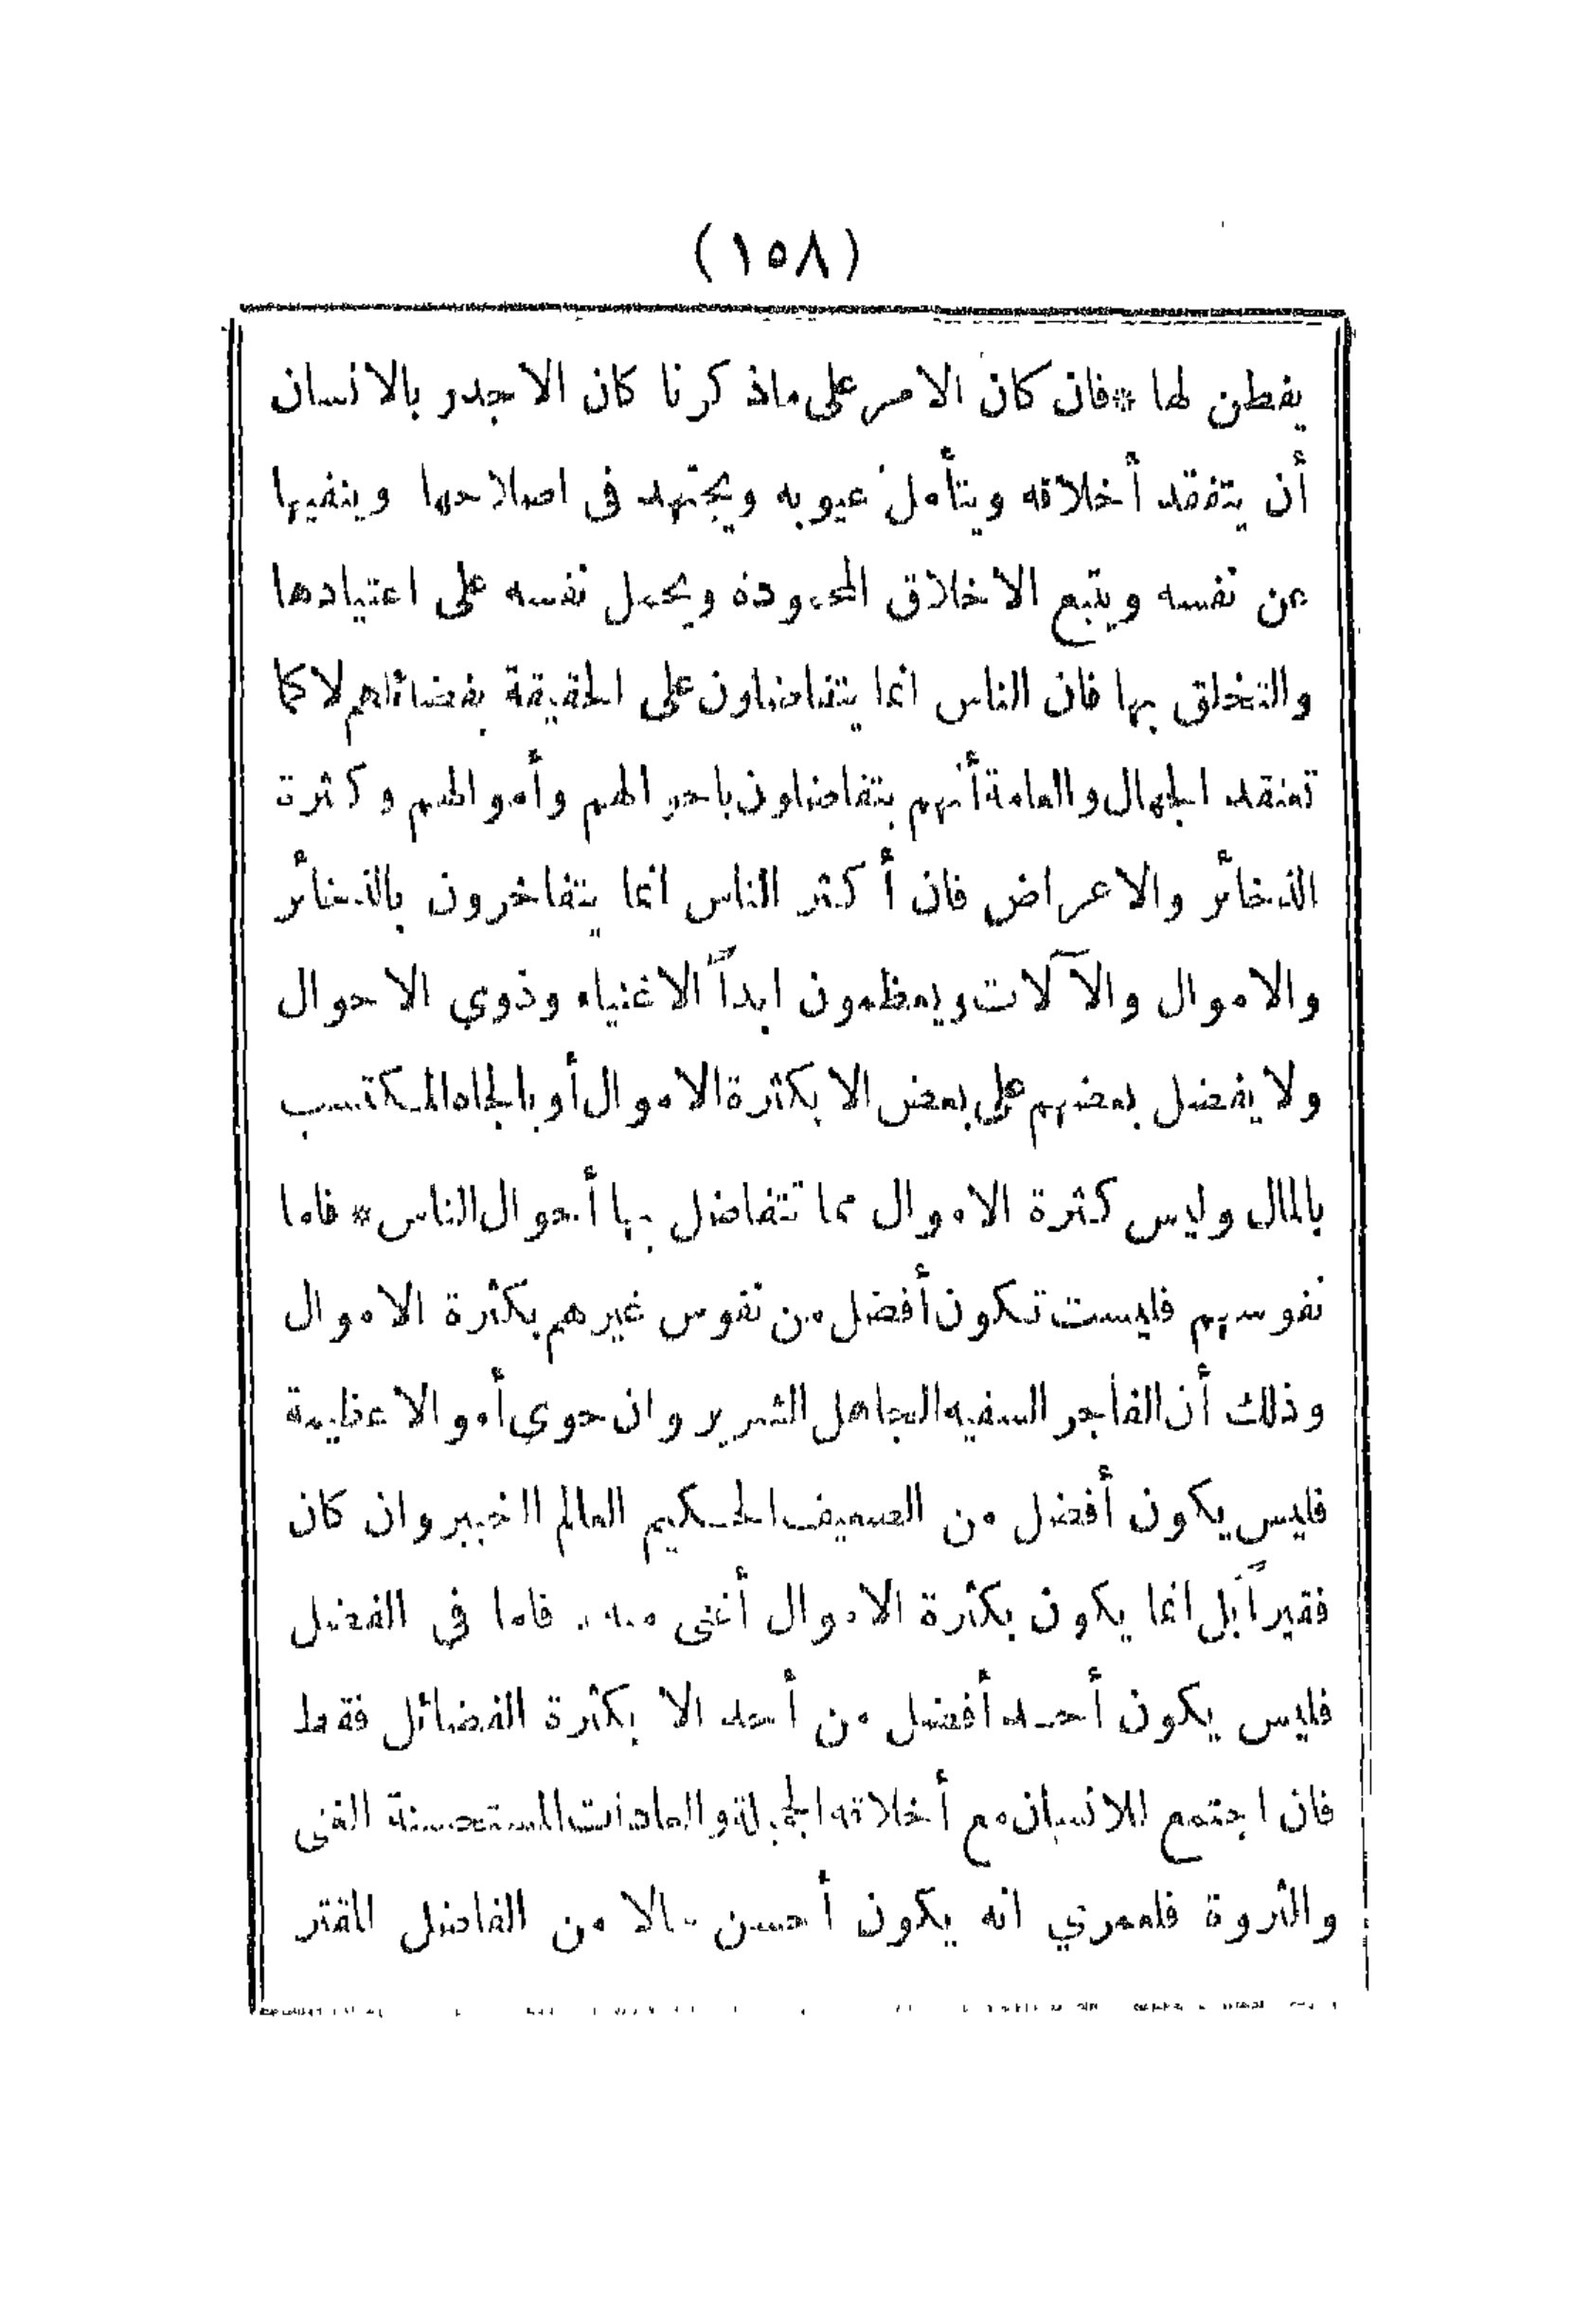 (١٥٨)
يفطن لها * فان كان الامر على ماذكرنا كان الاجدر بالانسان
أن يتفقد أخلاقه ويتأمل عيوبه ويجتهد فى اصلاحها وينفيها
عن نفسه ويتبع الاخلاق المحمودة ويحمل نفسه على اعتيادها
والتخلق بها فان الناس انما يتفاضلون على الحقيقة بفضائلهم لا كما
تعتقد الجهال والعامة أنهم يتفاضلون باحوالهم وأموالهم وكثرة
الذخائر والاعراض فان أكثر الناس انما يتفاخرون بالذخائر
والاموال والآلات ويعظمون ابداً الاغنياء وذوي الاحوال
ولا يفضل بعضهم على بعض الا بكثرة الاموال أو بالجاه المكتسب
بالمال وليس كثرة الاموال مما تتفاضل بها أحوال الناس * فاما
نفوسهم فليست تكون أفضل من نفوس غيرهم بكثرة الاموال
وذلك أن الفاجر السفيه الجاهل الشرير وان حوى أموالا عظيمة
فليس يكون أفضل من العفيف الحكيم العالم الخبير وان كان
فقيراً بل انما يكون بكثرة الاموال أغنى منه. فاما في الفضل
فليس يكون أحد أفضل من أحد الا بكثرة الفضائل فقط
فان اجتمع للانسان مع أخلاقه الجميلة والعادات المستحسنة الغنى
والثروة فلعمري انه يكون أحسن حالا من الفاضل المقتر